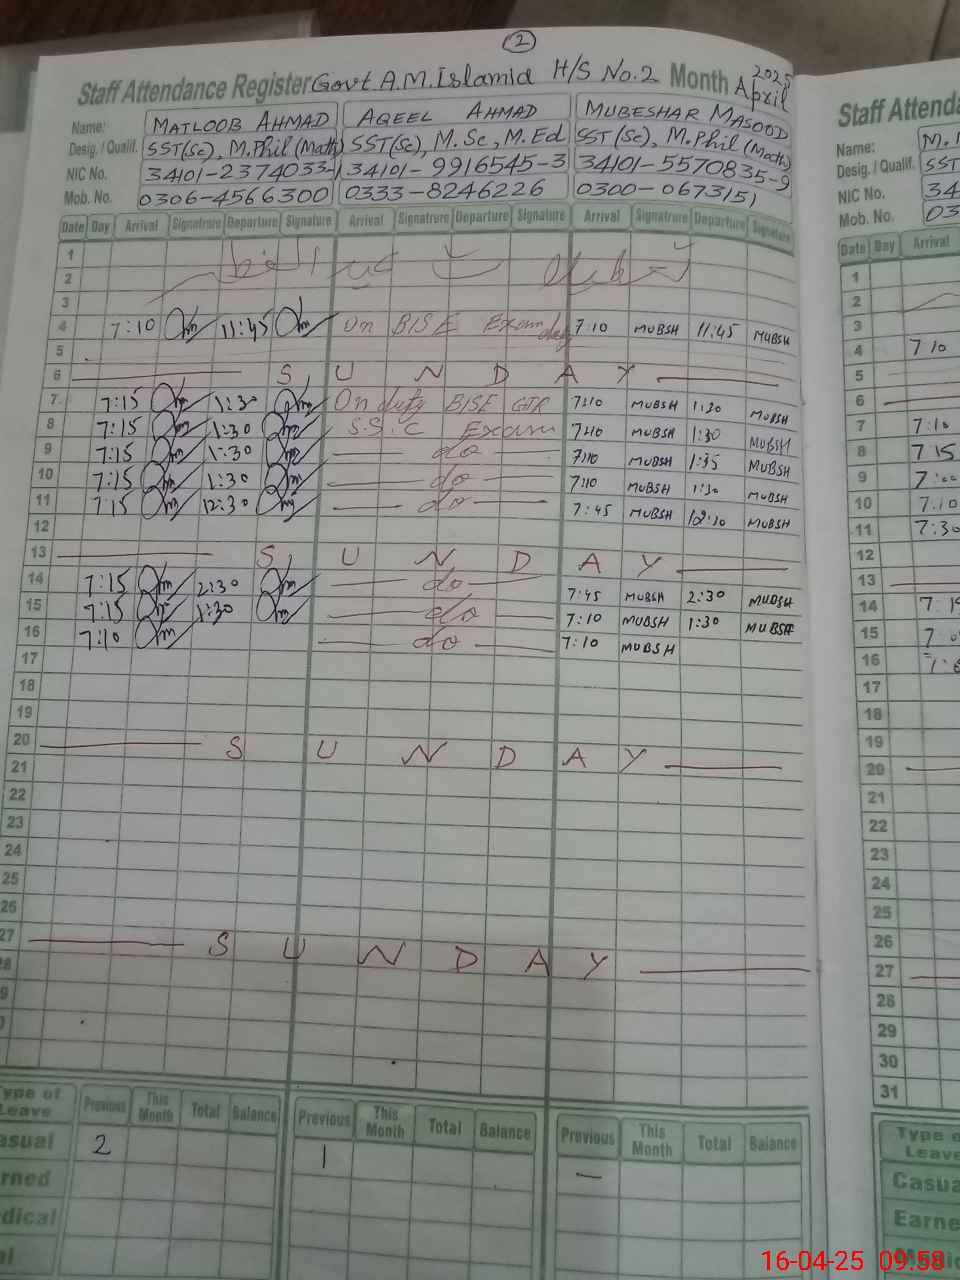 2
Staff Attendance Register Govt A.M. Islamia H/S No.2 Month April 2025
Name: MATLOOB AHMAD AQEEL AHMAD MUBESHAR MASOOD
Desig. / Qualif. SST(Sc), M.Phil (Math) SST(Sc), M.Sc, M.Ed SST(Sc), M.Phil (Math)
NIC No. 34101-2374033-1 34101-9916545-3 34101-5570835-9
Mob. No. 0306-4566300 0333-8246226 0300-0673151
Date Day Arrival Signatrure Departure Signature Arrival Signatrure Departure Signature Arrival Signatrure Departure Signature
1 تعطیلات عید الفطر
2
3
4 7:10 11:45 On BISE Exam duty 7:10 MUBSH 11:45 MUBSH
5
6 S U N D A Y
7 7:15 1:30 On duty BISE GTR 7:10 MUBSH 1:30 MUBSH
8 7:15 1:30 S.S.C Exam 7:10 MUBSH 1:30 MUBSH
9 7:15 1:30 do 7:10 MUBSH 1:35 MUBSH
10 7:15 1:30 do 7:10 MUBSH 1:30 MUBSH
11 7:15 12:30 do 7:45 MUBSH 12:10 MUBSH
12
13 S U N D A Y
14 7:15 2:30 do 7:45 MUBSH 2:30 MUBSH
15 7:15 1:30 do 7:10 MUBSH 1:30 MUBSH
16 7:10 do 7:10 MUBSH
17
18
19
20 S U N D A Y
21
22
23
24
25
26
27 S U N D A Y
28
9
Type of Leave Previous This Month Total Balance Previous This Month Total Balance Previous This Month Total Balance
asual 2 1 —
rned
dical
Staff Attenda
Name: M.
Desig. / Qualif. SST
NIC No. 34
Mob. No. 03
Date Day Arrival
1
2
3
4 7 10
5
6
7 7:10
8 7 15
9 7:00
10 7:10
11 7:30
12
13
14
15
16
17
18
19
20
21
22
23
24
25
26
27
28
29
30
31
Type o
Leave
Casua
Earne
16-04-25 09:58